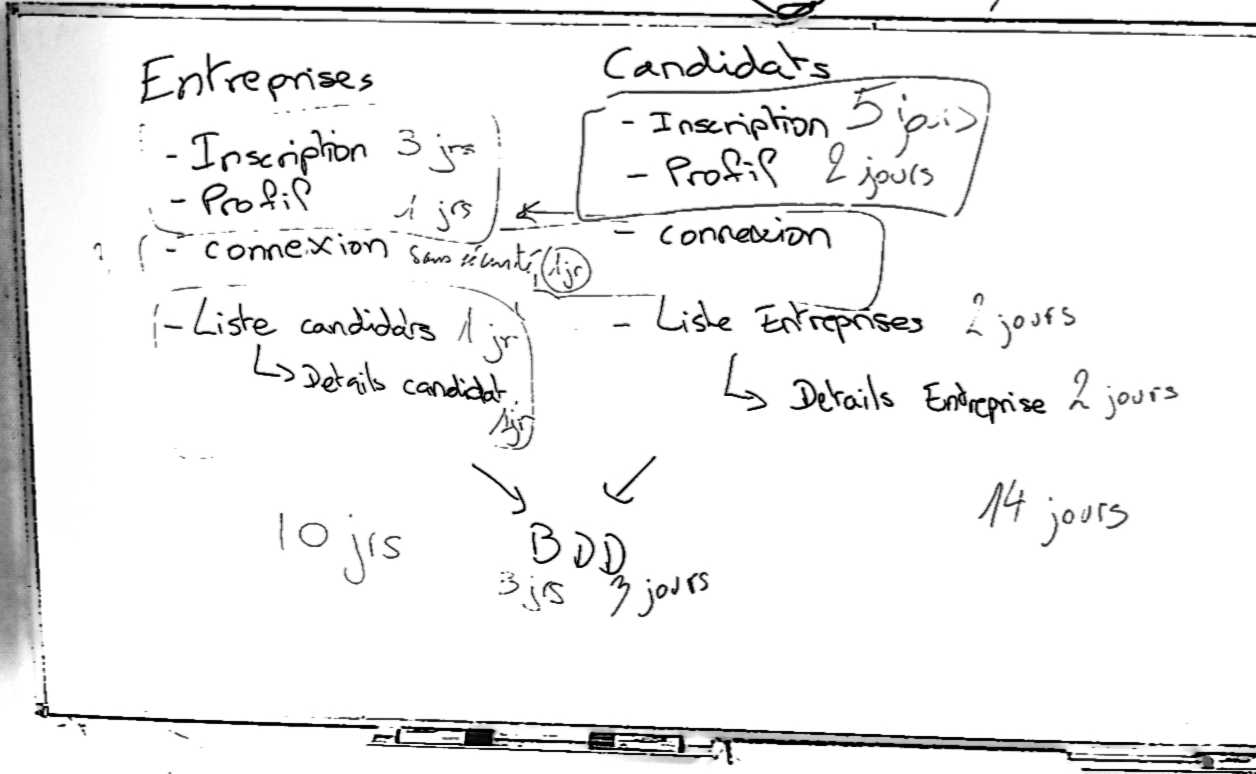 Entreprises
- Inscription 3 jrs
- Profil 1 jrs
? - connexion sans sécurité 1 jr
- Liste candidats 1 jr
↳ Détails candidat
1 jr
10 jrs
Candidats
- Inscription 5 jours
- Profil 2 jours
- connexion
- Liste Entreprises 2 jours
↳ Détails Entreprise 2 jours
14 jours
BDD
3 jrs 3 jours